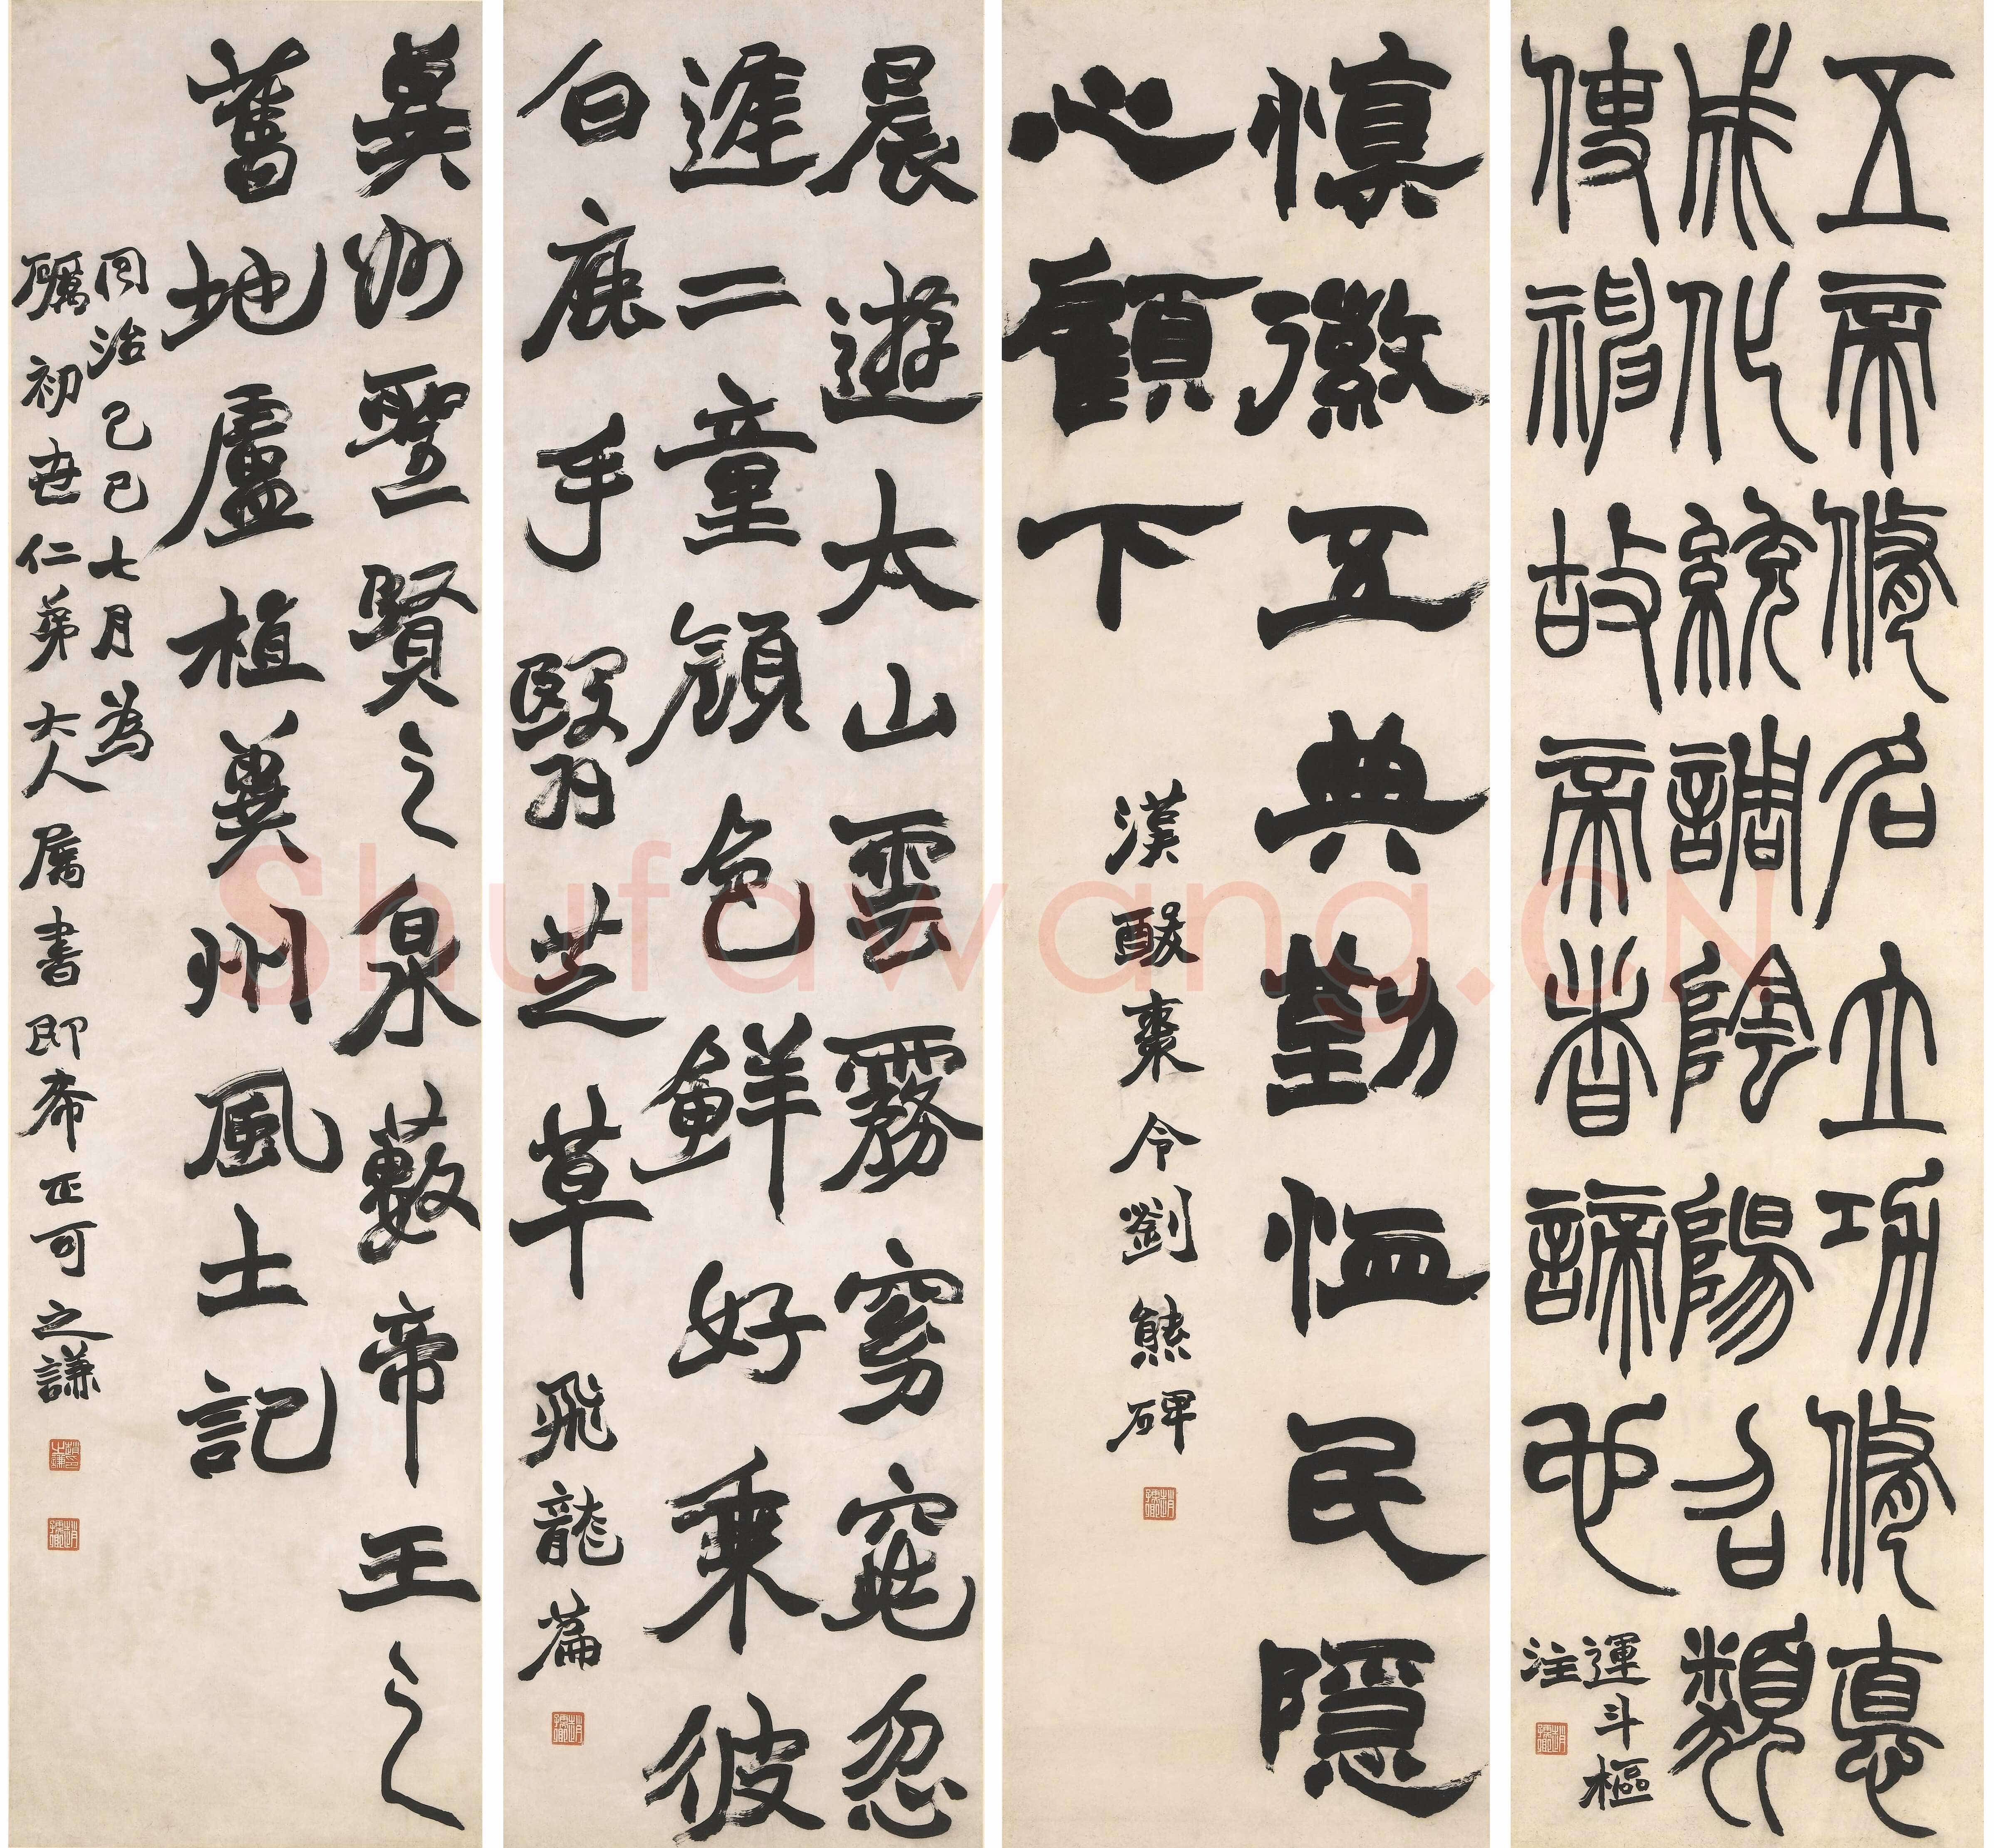 五帝修名立功修惪
成化統調陰陽召類
使神故帝者諦也
運斗樞
注
慎徽五典勤恤民隱
心顧下
漢酸棗令劉熊碑
晨遊太山雲霧窈窕忽
逢二童顏色鮮好乘彼
白鹿手翳芝草
飛龍篇
冀州聖賢之泉藪帝王之
舊地盧植冀州風土記
同治己巳七月為
礪初世仁弟大人属書即希正可之謙
Shufawang.CN